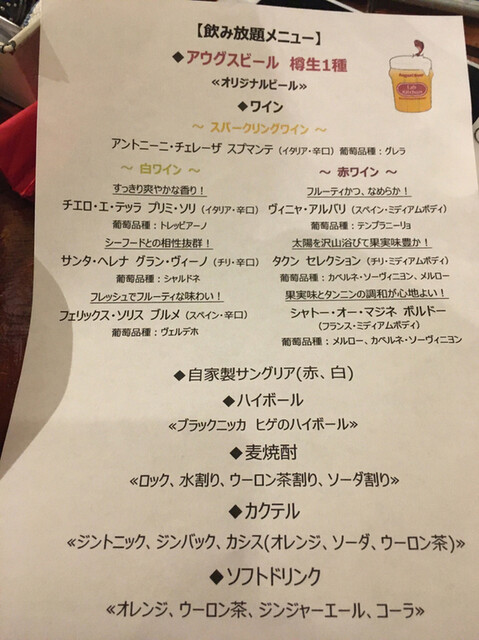 【飲み放題メニュー】
◆アウグスビール 樽生1種
≪オリジナルビール≫
◆ワイン
～ スパークリングワイン ～
アントニーニ・チェレーザ スプマンテ（イタリア・辛口）葡萄品種：グレラ
～ 白ワイン ～
すっきり爽やかな香り！
チエロ・エ・テッラ プリミ・ソリ（イタリア・辛口）
葡萄品種：トレッビアーノ
シーフードとの相性抜群！
サンタ・ヘレナ グラン・ヴィーノ（チリ・辛口）
葡萄品種：シャルドネ
フレッシュでフルーティな味わい！
フェリックス・ソリス ブルメ（スペイン・辛口）
葡萄品種：ヴェルデホ
～ 赤ワイン ～
フルーティかつ、なめらか！
ヴィニャ・アルバリ（スペイン・ミディアムボディ）
葡萄品種：テンプラニーリョ
太陽を沢山浴びて果実味豊か！
タクン セレクション（チリ・ミディアムボディ）
葡萄品種：カベルネ・ソーヴィニヨン、メルロー
果実味とタンニンの調和が心地よい！
シャトー・オー・マジネ ボルドー
（フランス・ミディアムボディ）
葡萄品種：メルロー、カベルネ・ソーヴィニヨン
◆自家製サングリア(赤、白)
◆ハイボール
≪ブラックニッカ ヒゲのハイボール≫
◆麦焼酎
≪ロック、水割り、ウーロン茶割り、ソーダ割り≫
◆カクテル
≪ジントニック、ジンバック、カシス(オレンジ、ソーダ、ウーロン茶)≫
◆ソフトドリンク
≪オレンジ、ウーロン茶、ジンジャーエール、コーラ≫